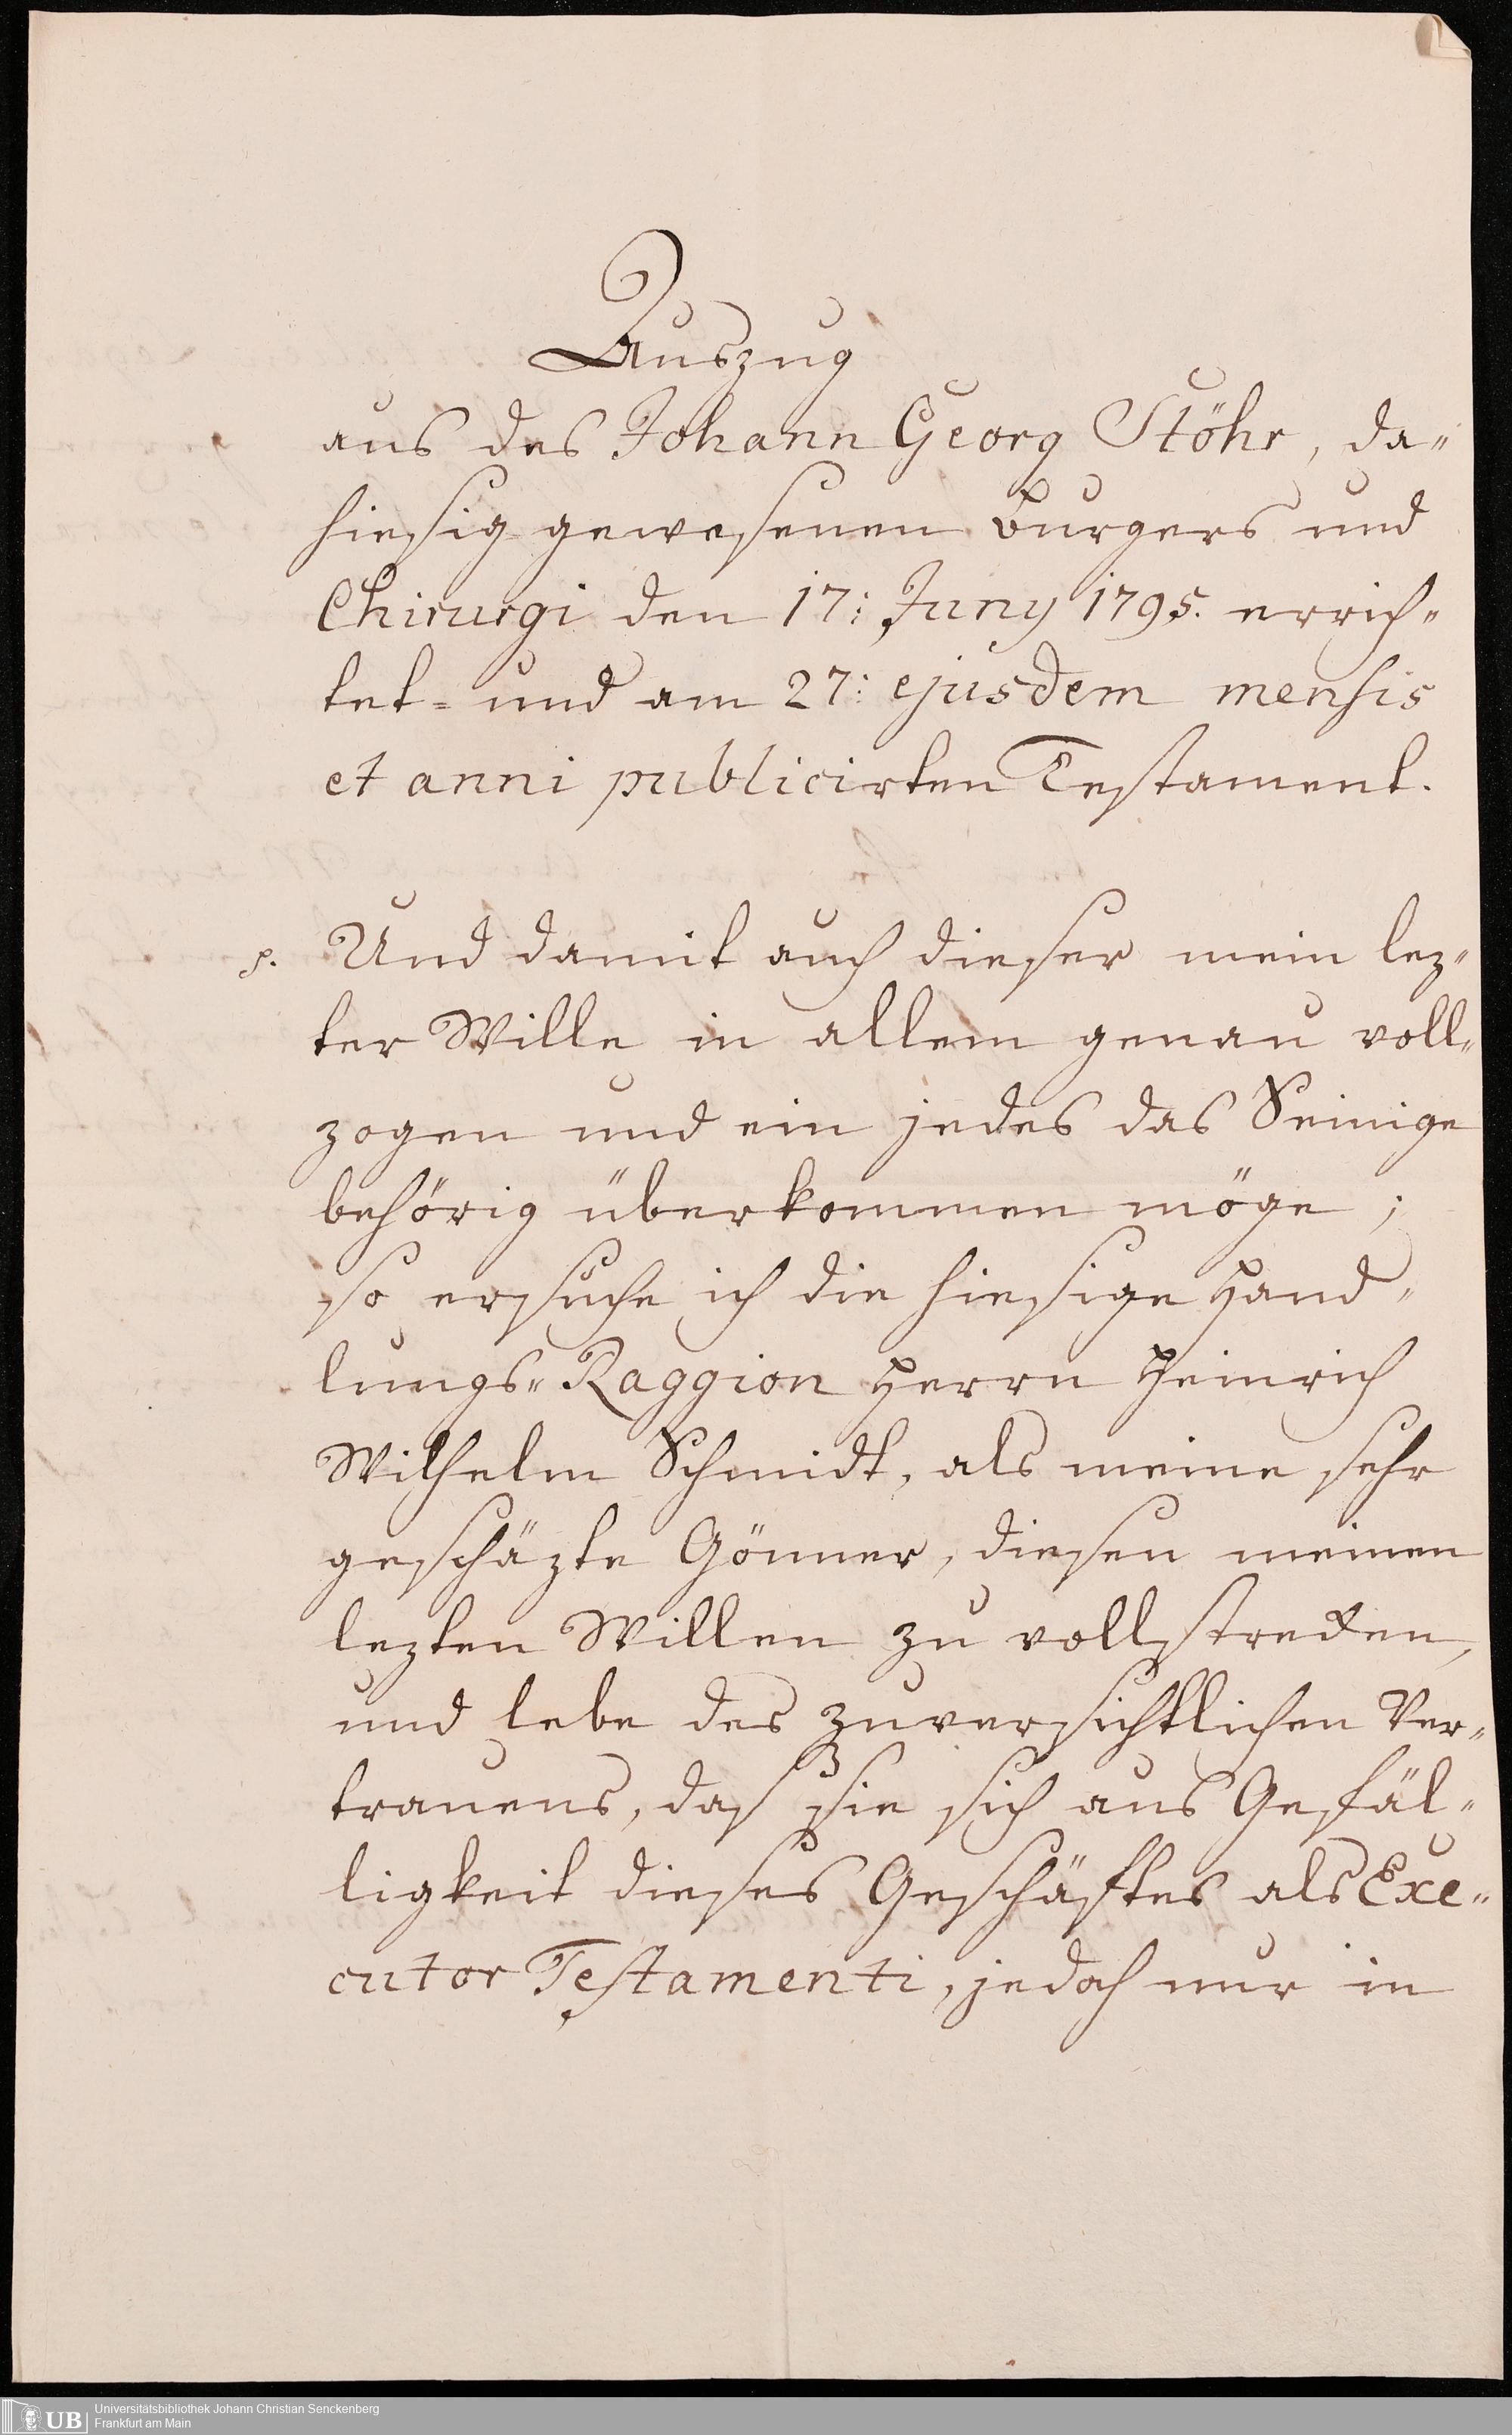 Auszug
aus des Johann Georg Stöhr, da„
hiesig gewesenen Burgers und
Chirurgi den 17: Juny 1795. errich„
tet= und am 27: ejusdem mensis
et anni publicirten Testament.
p. Und damit auch dieser mein lez„
ter Wille in allem genau voll„
zogen und ein jedes das Seinige
behörig überkommen möge;
so ersuche ich die hiesige Hand„
lungs„Raggion Herrn Heinrich
Wilhelm Schmidt, als meine sehr
geschäzte Gönner, diesen meinen
lezten Willen zu vollstrecken,
und lebe des zuversichtlichen Ver„
trauens, daß sie sich aus Gefäl„
ligkeit dieses Geschäftes als Exe„
cutor Testamenti, jedoch nur in
UB
Universitätsbibliothek Johann Christian Senckenberg
Frankfurt am Main